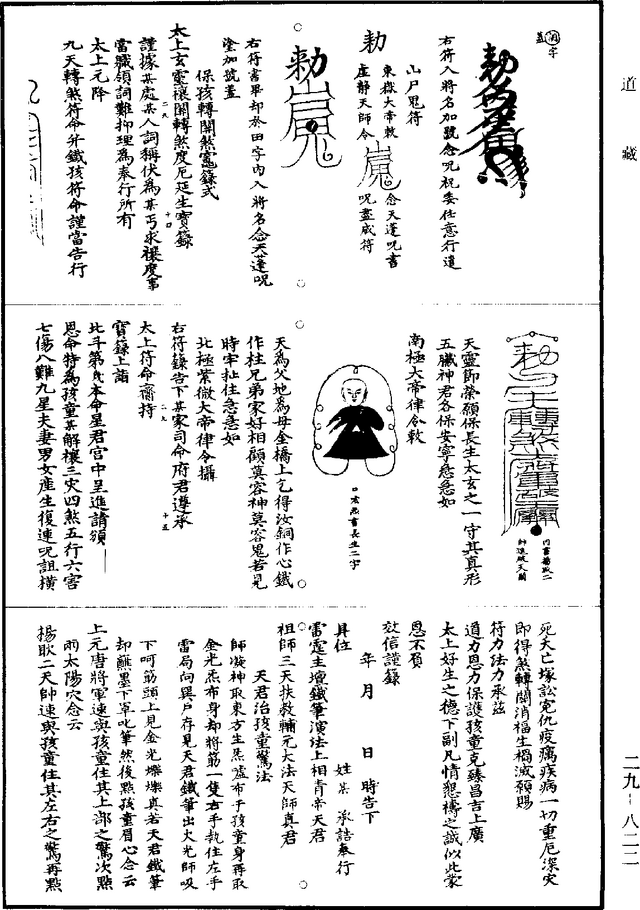 道藏
涸字
蓋
右符入將名加號念呪祝委任意行遣
山尸鬼符
勅
東嶽大帝敕
虛靜天師令
念天蓬呪書
呪畫成符
右符書畢却於田字內入將名念天蓬呪
塗加號蓋
保孩轉關煞靈籙式
太上玄靈禳關轉煞度厄延生寶籙
謹據某處某人詞稱伏為某丐求禳度事
當職領詞難抑理為奉行所有
太上元降
九天轉煞符命并鐵孩符命謹當告行
內書楊耿二
帥速破天關
天靈節榮願保長生太玄之一守其真形
五臟神君各保安寧急急如
南極大帝律令敕
口炁書長生二字
天為父地為母金橋上乞得汝銅作心鐵
作柱兄弟家好相顧莫容神莫容鬼若見
時牢扯住急急如
北極紫微大帝律令攝
右符籙告下某家司命府君遵承
太上符命齎持
寶籙上詣
北斗第幾本命星君宮中呈進請頒
恩命特為孩童某解禳三災四煞五行六害
七傷八難九星夫妻男女產生復連呪詛橫
死天亡塚訟冤仇疫癘疾病一切重厄深災
即得煞轉關消福生禍滅願賜
符力法力承茲
道力恩力保護孩童克臻昌吉上廣
太上好生之德下副凡情懇禱之誠似此蒙
恩不負
效信謹籙
年 月 日 時告下
具位 姓某 承誥奉行
雷霆主壇鐵筆演法上相青帝天君
祖師三天扶教輔元大法天師真君
天君治孩童驚法
師凝神取東方生炁噓布于孩童身再取
金光炁布身却將筯一隻右手執住左手
雷局向巽戶存見天君鐵筆出火光師吸
下呵筯頭上見金光爍爍真若天君鐵筆
却蘸墨下罩叱筆然後點孩童眉心念云
上元唐將軍速與孩童住其上部之驚次點
兩太陽穴念云
楊耿二天帥速與孩童住其左右之驚再點
二九-八二二